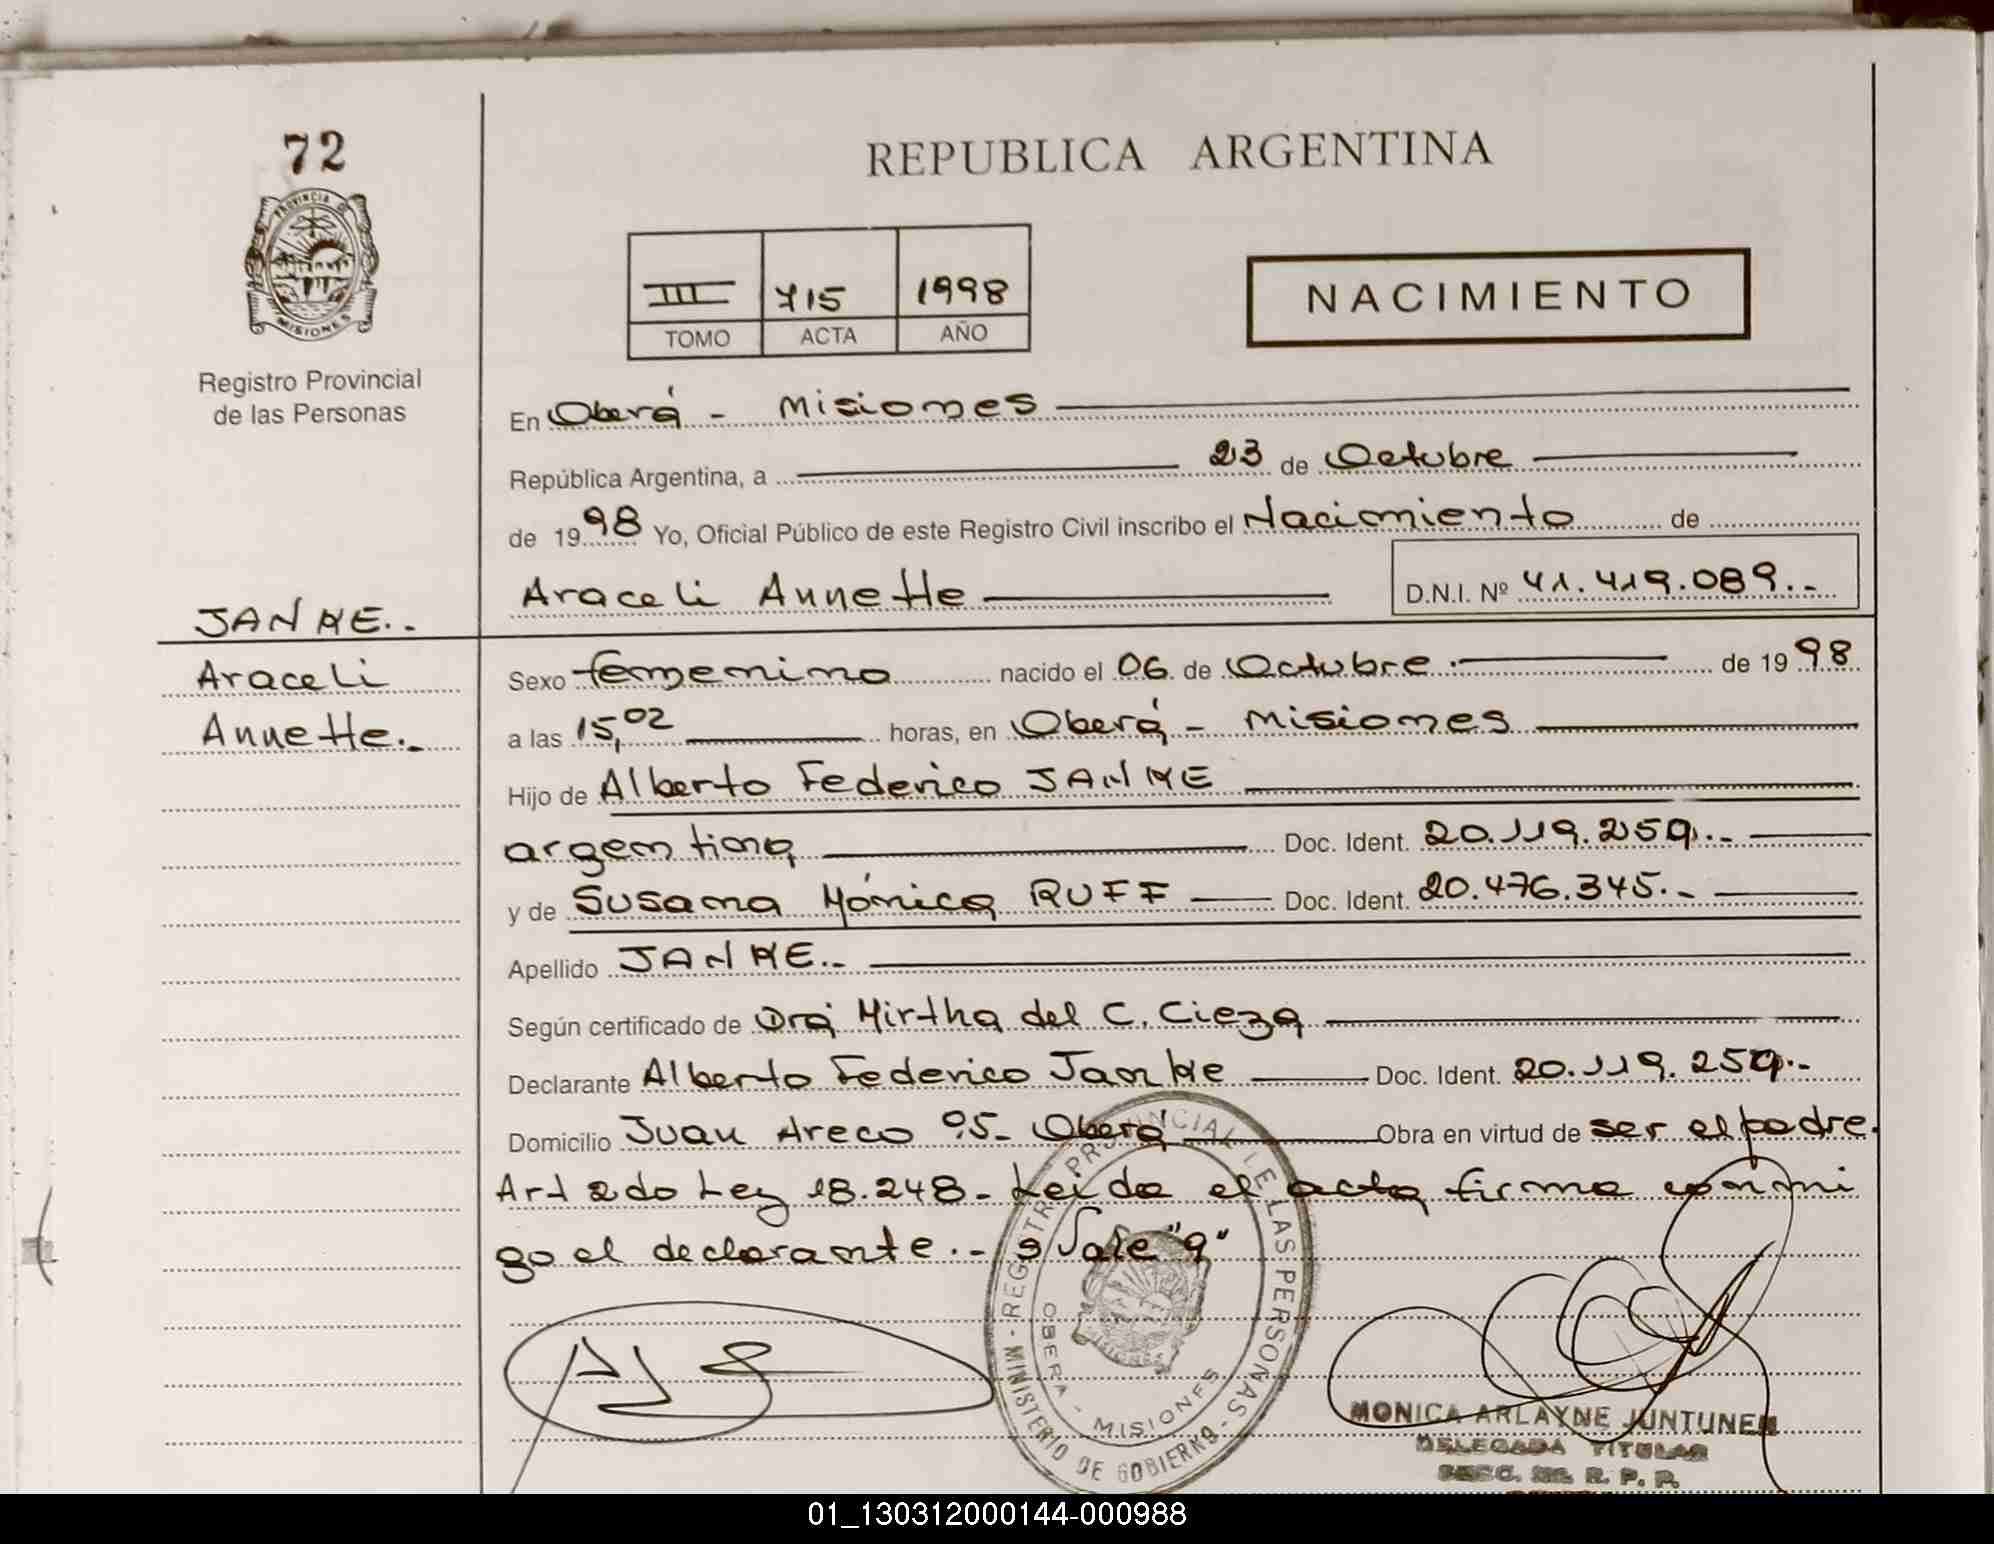 72
PROVINCIA DE
MISIONES
Registro Provincial
de las Personas
REPUBLICA ARGENTINA
III 715 1998
TOMO ACTA AÑO
NACIMIENTO
En Oberá - Misiones
República Argentina, a 23 de Octubre
de 1998 Yo, Oficial Público de este Registro Civil inscribo el Nacimiento de
Araceli Annette D.N.I. Nº 41.419.089.-
JANKE.-
Araceli
Annette.-
Sexo femenino nacido el 06 de Octubre.- de 1998
a las 15,02 horas, en Oberá - Misiones
Hijo de Alberto Federico JANKE
argentina Doc. Ident. 20.119.259.-
y de Susana Mónica RUFF Doc. Ident. 20.476.345.-
Apellido JANKE.-
Según certificado de Dra Mirtha del C. Cieza
Declarante Alberto Federico Janke Doc. Ident. 20.119.259.-
Domicilio Juan Areco 95- Oberá Obra en virtud de ser el padre.
Art 2do Ley 18.248- Leida el acta firma conmi
go el declarante.- Vale "9"
REGISTRO PROVINCIAL DE LAS PERSONAS - MINISTERIO DE GOBIERNO -
OBERA - MISIONES
MONICA ARLAYNE JUNTUNEN
DELEGADA TITULAR
R. P. P.
01_130312000144-000988